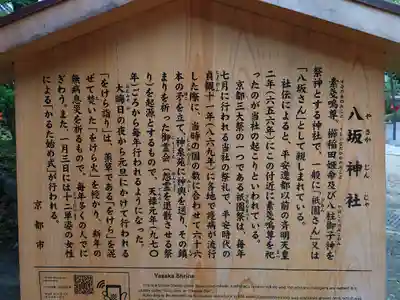 八坂神社
やさかじんじゃ
素戔嗚尊、櫛稲田姫命及び八柱御子神を
祭神とする神社で、一般に「祇園さん」又は
「八坂さん」として親しまれている。
社伝によると、平安遷都以前の斉明天皇
二年(六五六年)にこの付近に素戔嗚尊を祀
ったのが当社の起こりといわれている。
京都三大祭の一つである祇園祭は、毎年
七月に行われる当社の祭礼で、平安時代の
貞観十一年(八六九年)に各地で疫病が流行
した際に、当時の国の数に合わせて六十六
本の矛を立て、神泉苑に神輿を送り、その鎮
まりを祈った御霊会(怨霊を退散させる祭
り)を起源とするもので、天禄元年(九七〇
年)ごろから毎年行われるようになった。
大晦日の夜から元旦にかけて行われる
「をけら詣り」は、薬草である「をけら」を混
ぜて焚いた「をけら火」を授かり、新年の
無病息災を祈るもので、毎年多くの人でに
ぎわう。また、一月三日には十二単姿の女性
による「かるた始め式」が行われる。
京都市
Yasaka Shrine